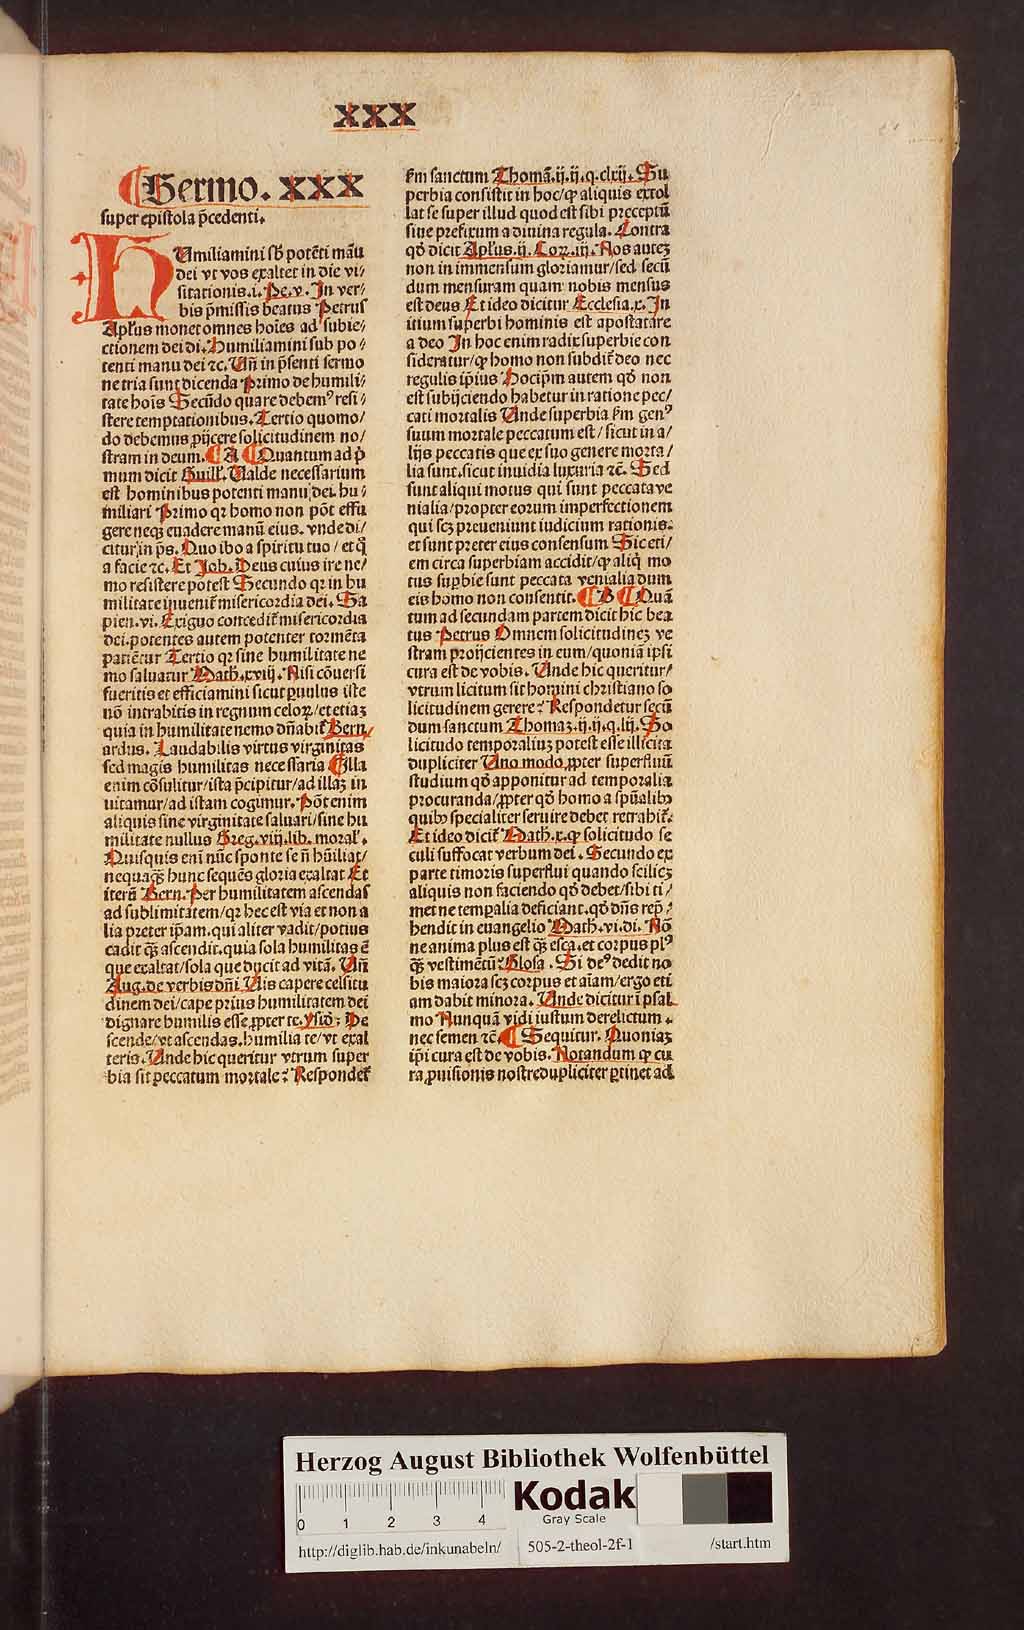 XXX
¶Sermo. XXX
super epistola p̄cedenti.
HUmiliamini sb̄ potēti māu
dei vt vos exaltet in die vi/
sitationis.i. Pe.v. In ver/
bis p̄missis beatus Petrus
Apl̄us monet omnes hoīes ad subie/
ctionem dei di. Humiliamini sub po/
tenti manu dei ⁊c. Uñ in p̄senti sermo
ne tria sunt dicenda Primo de humili/
tate hoīs Secūdo quare debemꝰ resi/
stere temptationibus. Tertio quomo/
do debemus ꝓijcere solicitudinem no/
stram in deum. ¶ A ¶ Quantum ad p̄
mum dicit Guill̄. Ualde necessarium
est hominibus potenti manu dei hu/
miliari Primo qꝛ homo non pōt effu
gere neqꝫ euadere manū eius. vnde di/
citur in ps̄. Quo ibo a spiritu tuo / et q̊
a facie ⁊c. Et Job. Deus cuius ire ne/
mo resistere potest Secundo qꝛ in hu
militate inuenit᷑ misericordia dei. Sa
pien.vi. Exiguo concedit᷑ misericordia
dei.potentes autem potenter tormēta
patiētur Tertio qꝛ sine humilitate ne
mo saluatur Math.xviij. Nisi cōuersi
fueritis et efficiamini sicut ꝑuulus iste
nō intrabitis in regnum celoꝝ / et etiaꝫ
quia in humilitate nemo dn̄abit᷑ Bern/
ardus. Laudabilis virtus virginitas
sed magis humilitas necessaria ¶Illa
enim cōsulitur/ista p̄cipitur/ad illaꝫ in
uitamur/ad istam cogimur. Pōt enim
aliquis sine virginitate saluari/sine hu
militate nullus Greg.viij.lib. moral̄.
Quisquis eni nūc sponte se nō hūiliat/
nequaqꝫ hunc sequēs gloria exaltat Et
iterū Bern. Per humilitatem ascendas
ad sublimitatem/qꝛ hec est via et non a
lia preter ip̄am. qui aliter vadit/potius
cadit qꝫ ascendit.quia sola humilitas ē
que exaltat/sola que ducit ad vitā. Uñ
Aug.de verbis dn̄i. Uis capere celsitu
dinem dei/cape prius humilitatem dei
dignare humilis esse ꝓpter te. ysid̄: De
scende/vt ascendas.humilia te/vt exal
teris. Unde hic queritur vtrum super
bia sit peccatum mortale? Respondet᷑
s̄m sanctum Thomā.ij.ij.q.clxij. Su
perbia consistit in hoc/ꝙ aliquis extol
lat se super illud quod est sibi preceptū
siue prefixum a diuina regula. Contra
qd̄ dicit Apl̄us.ij. Coꝝ.iij. Nos auteꝫ
non in immensum gloriamur/sed secū
dum mensuram quam nobis mensus
est deus Et ideo dicitur Ecclesia.x. In
itium superbi hominis est apostatare
a deo In hoc enim radix superbie con
sideratur/ꝙ homo non subdit᷑ deo nec
regulis ip̄ius Hocip̄m autem qd̄ non
est subijciendo habetur in ratione pec/
cati mortalis Unde superbia s̄m genꝰ
suum mortale peccatum est/ sicut in a/
lijs peccatis que ex suo genere morta/
lia sunt.sicut inuidia luxuria ⁊c̄. Sed
sunt aliqui motus qui sunt peccata ve
nialia/propter eorum imperfectionem
qui scꝫ preueniunt iudicium rationis.
et sunt preter eius consensum Sic eti/
em circa superbiam accidit/ꝙ aliq̄ mo
tus suꝑbie sunt peccata venialia dum
eis homo non consentit. ¶ B ¶ Quā
tum ad secundam partem dicit hic bea
tus Petrus Omnem solicitudineꝫ ve
stram proijcientes in eum/quoniā ipsi
cura est de vobis. Unde hic queritur/
vtrum licitum sit homini christiano so
licitudinem gerere? Respondetur secū
dum sanctum Thomaꝫ.ij.ij.q.lij. So
licitudo temporaliuꝫ potest esse illicita
dupliciter Uno modo ꝓpter superfluū
studium qd̄ apponitur ad temporalia
procuranda/ꝓpter qd̄ homo a spūalibꝰ
quibꝰ specialiter seruire debet retrahit᷑.
Et ideo dicit᷑ Math.x.ꝙ solicitudo se
culi suffocat verbum dei. Secundo ex
parte timoris superflui quando scilicꝫ
aliquis non faciendo qd̄ debet/sibi ti/
met ne temꝑalia deficiant.qd̄ dn̄s rep̄/
hendit in euangelio Math.vi.di. Nō
ne anima plus est qꝫ esca.et corpus plꝰ
qꝫ vestimētū? Glosa. Si deꝰ dedit no
bis maiora scꝫ corpus et aīam/ergo eti
am dabit minora. Unde dicitur ī psal
mo Nunquā vidi iustum derelictum.
nec semen ⁊c̄. ¶ Sequitur. Quoniaꝫ
ip̄i cura est de vobis. Notandum ꝙ cu
ra ꝓuisionis nostre dupliciter ꝑtinet ad
Herzog August Bibliothek Wolfenbüttel
0 1 2 3 4
Kodak
Gray Scale
http://diglib.hab.de/inkunabeln/ 505-2-theol-2f-1 /start.htm